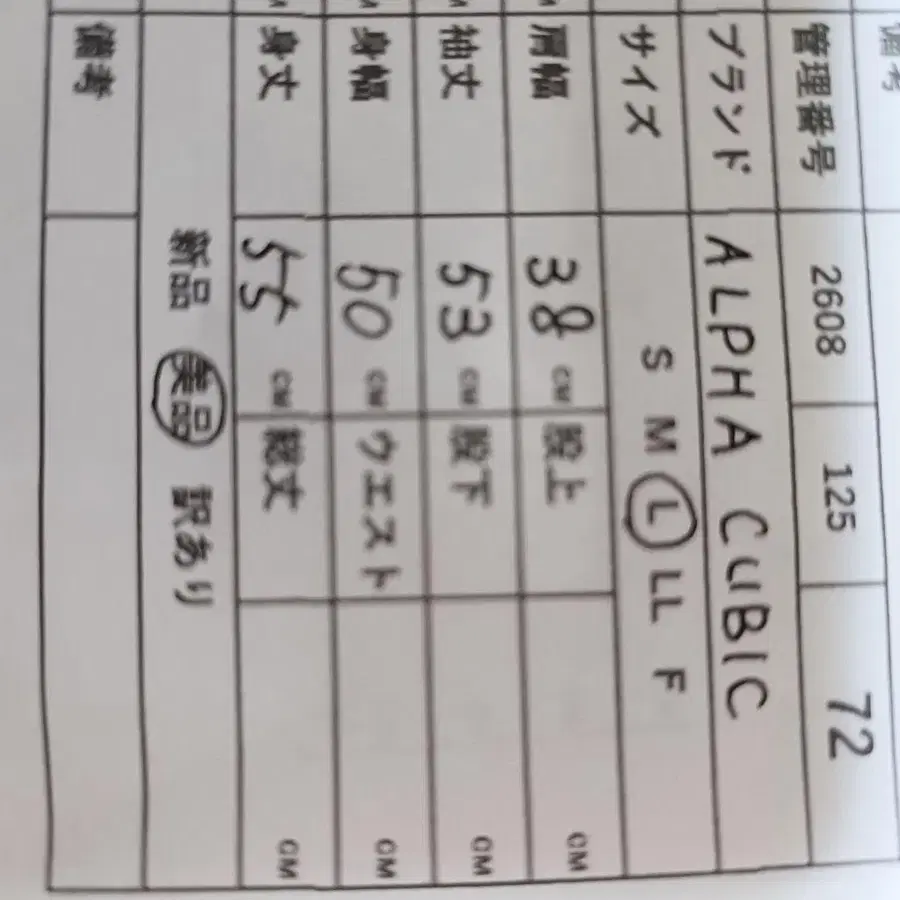 備考
管理番号 2608 125 72
ブランド ALPHA CUBIC
サイズ S M L LL F
肩幅 38 CM 股上 CM
袖丈 53 CM 股下 CM
身幅 50 CM ウエスト CM
身丈 55 CM 総丈 CM
新品 美品 訳あり
備考